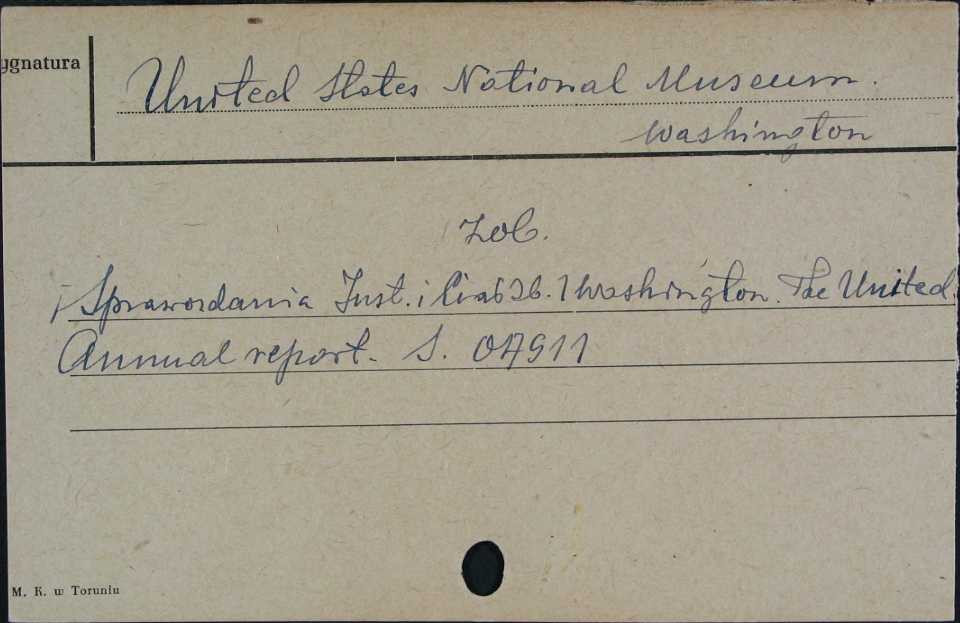 ygnatura
United States National Museum.
Washington
Zob.
Sprawozdania Inst. i Ciał Zb. Washington. The United.
Annual report. S. 0A911
M. K. w Toruniu